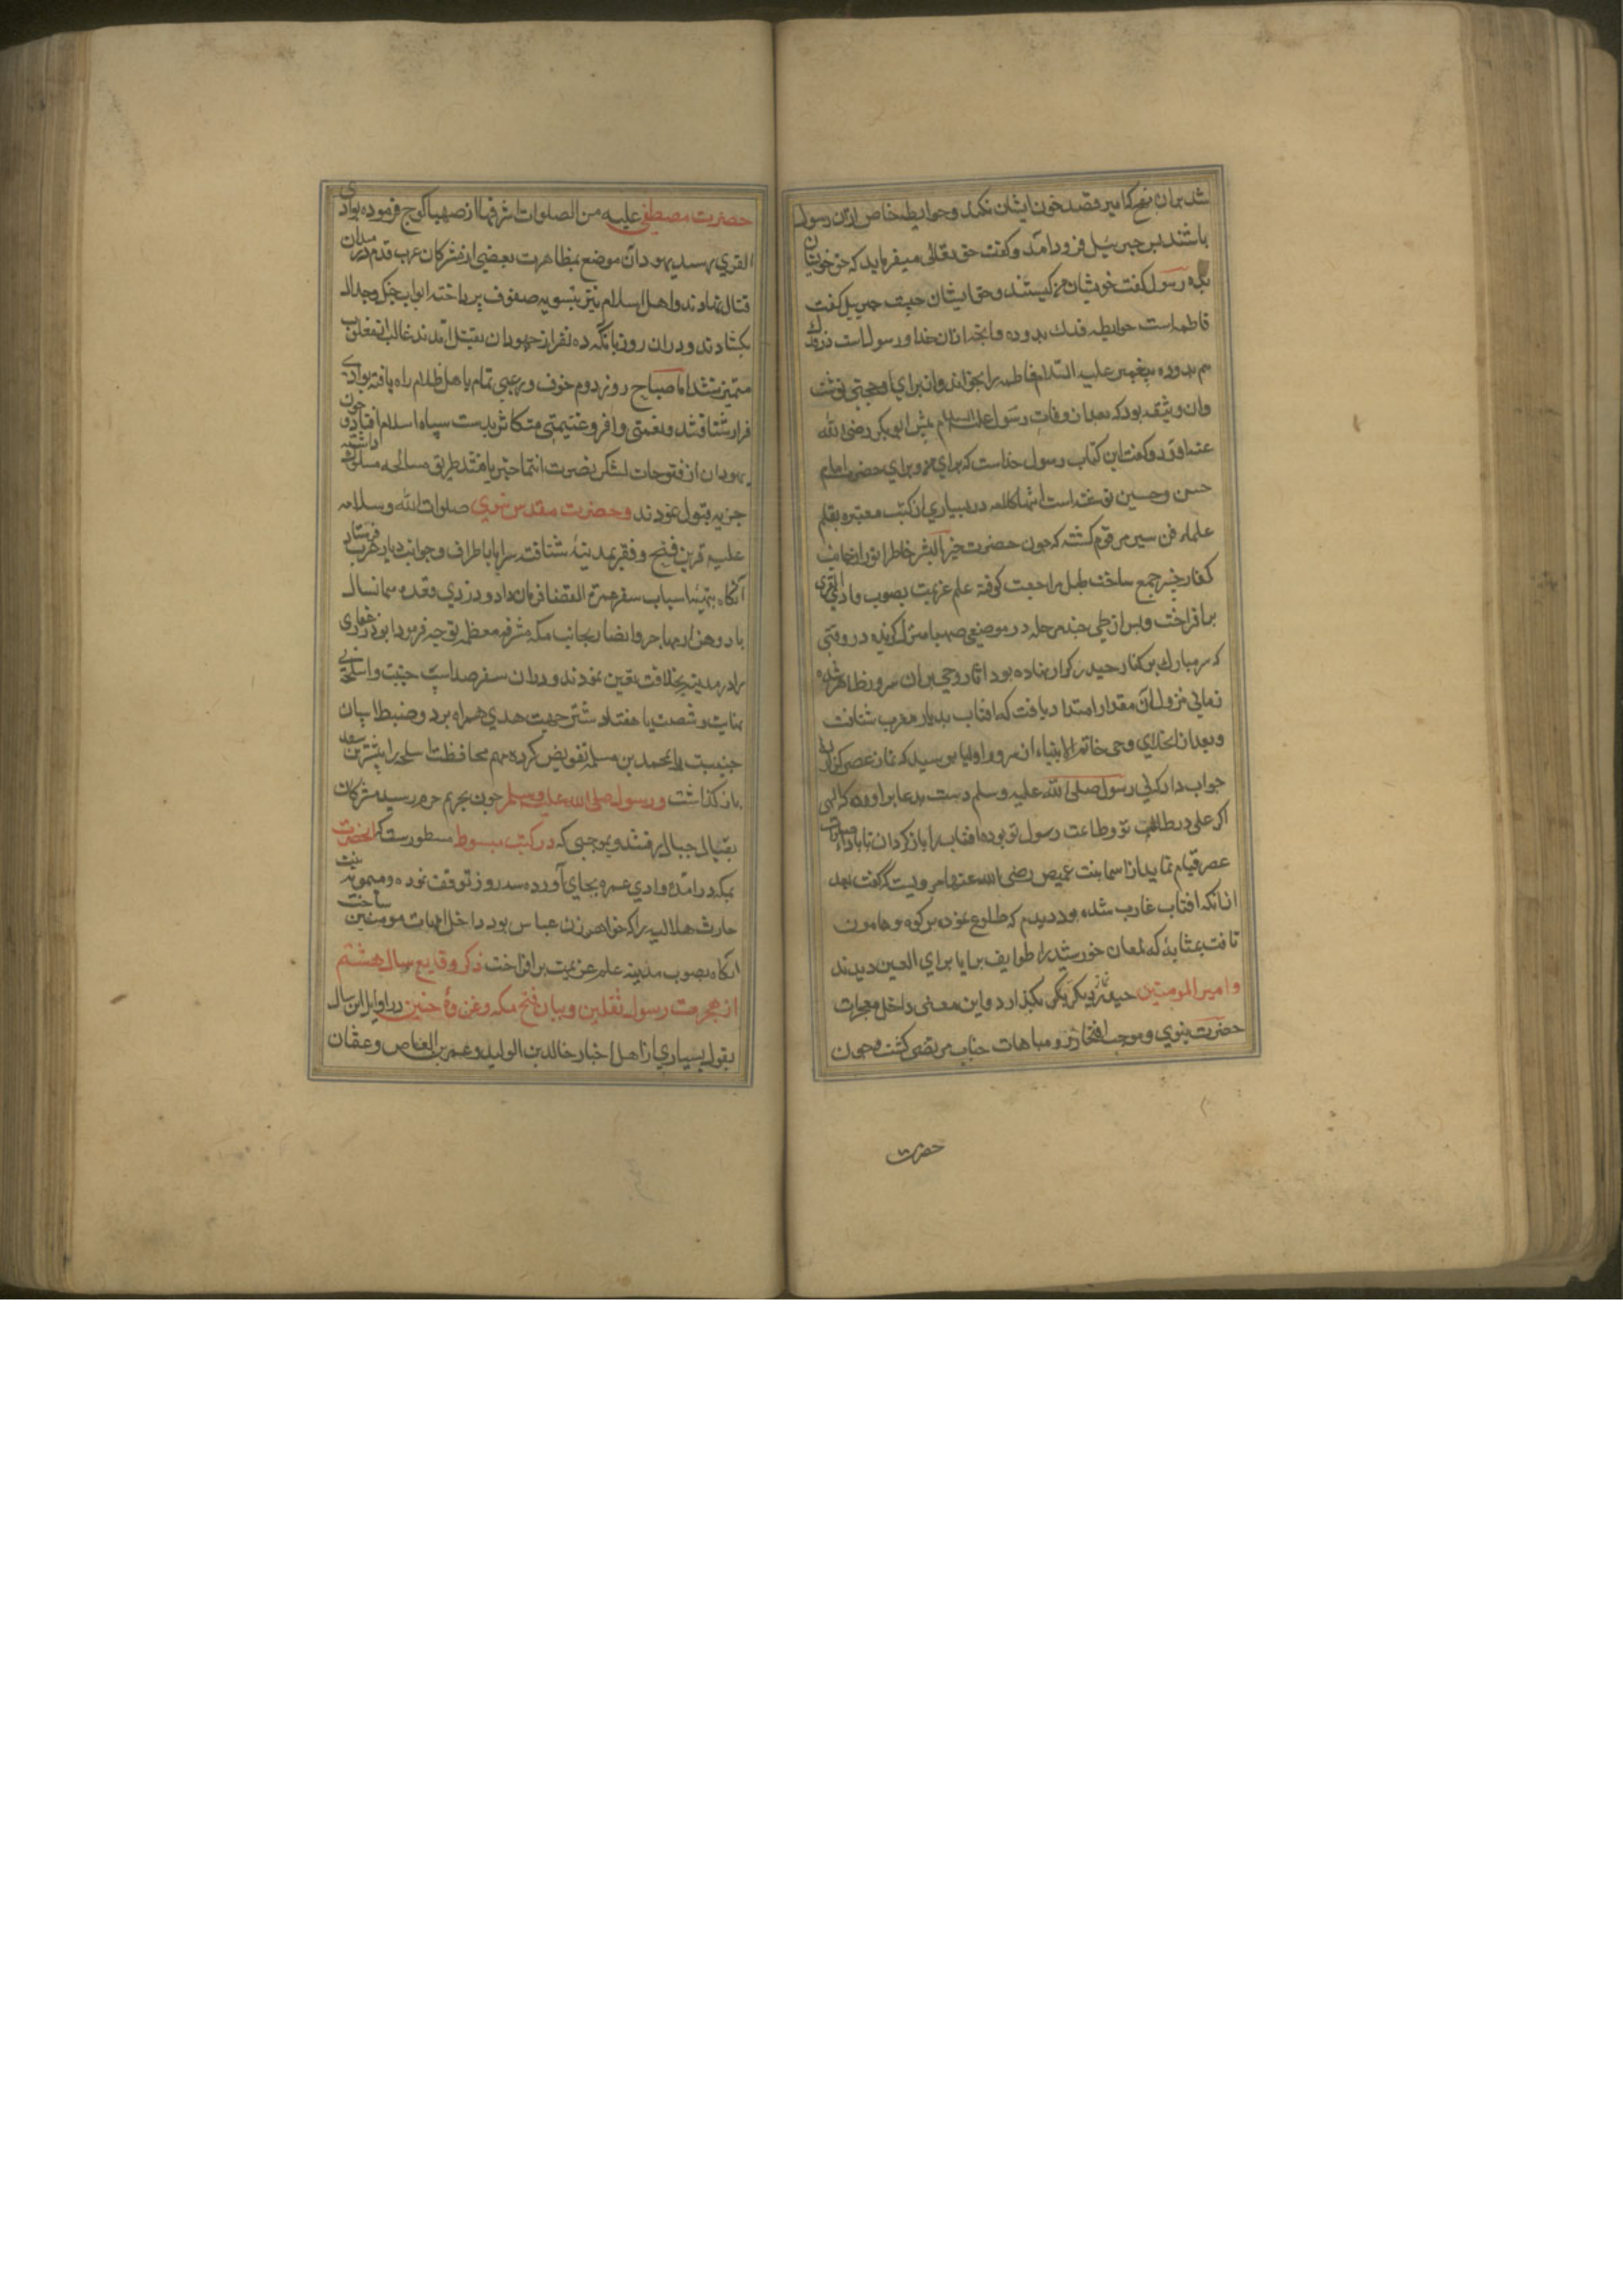 شد بران نهج كه امير قصد خون ايشان نكند و حوايط خاص ازان رسول
باشند پس جبرئيل فرود آمد و گفت حق تعالى ميفرمايد كه حق خويشان
بده رسول گفت خويشان من كيستند و حق ايشان چيست جبريل گفت
فاطمه است حوايط فدك بدو ده و آنچه ازان خدا و رسول است در فدك
هم بدو ده پيغمبر عليه السلام فاطمه را بخواند و از براى او حجتى نوشت
وان وثيقه بود كه بعد از وفات رسول عليه السلام پيش ابوبكر رضى الله
عنه آورد و گفت اين كتاب رسول خداست كه براى من و براى
حسن و حسين نوشته است در بسيارى از كتب معتبره بقلم
علماء فن سير مرقوم گشته كه چون حضرت خير البشر خاطر انور از جانب
كفار خيبر جمع ساخت طبل مراجعت كوفته علم عزيمت بصوب وادى القرى
برافراخت و پس از طى چند مرحله در موضع صهبا منزل گزيده در وقتى
كه سر مبارك بر كنار حيدر كرار نهاده بود اثار وحى بران سرور ظاهر شده
زمانى نزول آن مقدار امتداد يافت كه افتاب بديار مغرب شتافت
و بعد از انجلاى وحى خاتم الانبياء ازان سرور اوليا پرسيد كه نماز عصر گزاردى
جواب داد كه نى رسول صلى الله عليه وسلم دست بدعا براورده كه الهى
اكر على در طاعت تو و طاعت رسول تو بوده افتاب را باز گردان تا باداء صلوات
عصر قيام نمايد از اسما بنت عميس رضى الله عنها مرويست كه گفت بعد
ازانكه افتاب غارب شده بود ديدم كه طلوع نموده بر كوه و هامون
تافت بمثابۀ كه لمعان خورشيد را طوايف برايا براى العين ديدند
و امير المومنين حيدر نماز ديگر بگذارد و اين معنى داخل معجزات
حضرت نبوى و موجب افتخار و مباهات جناب مرتضوى گشت و چون
حضرت
حضرت مصطفى عليه من الصلوات اشرفها از صهبا كوچ فرموده بوادى
القرى رسيد يهودان موضع بمظاهرت بعضى از مشركان عرب قدم در ميدان
قتال نهادند و اهل اسلام نيز بتسويه صفوف پرداخته ابواب جنگ و جدال
بگشادند و دران روز با آنكه ده نفر از جهودان بقتل آمدند غالب از مغلوب
متميز نشد اما صباح روز دوم خوف و رعبى تمام باهل ظلام راه يافته بوادى
فرار شتافتند و نعمتى وافر و غنيمتى متكاثر بدست سپاه اسلام افتاد و چون
يهودان از فتوحات لشكر نصرت انتما خبر يافتند طريق مصالحه مسلوك داشته
جزيه قبول نمودند و حضرت مقدس نبوى صلوات الله و سلامه
عليه قرين فتح و ظفر بمدينه شتافته سرايا باطراف و جوانب ديار عرب فرستاد
آنگاه بتهيۀ اسباب سفر عمرة القضا فرمان داد و در ذى قعده همانسال
با دو هزار مهاجر و انصار بجانب مكه مشرفه معظمه توجه فرمود ابوذر غفارى
را در مدينه بخلافت تعيين نمودند و دران سفر صد اسپ جنيبت و اسلحۀ
بنهايت و شصت يا هفتاد شتر جهت هدى همراه برد و ضبط اسپان
جنيبت را بمحمد بن مسلمه تفويض كرده مهم محافظت اسلحه را ببشر بن سعد
باز گذاشت و رسول صلى الله عليه وسلم چون بحريم حرم رسيد مشركان
بقلال جبال رفتند و بموجبى كه در كتب مبسوط مسطورست كه آنحضرت
بمكه درآمده وادى عمره بجاى آورده سه روز توقف نموده و ميمونه بنت
حارث هلاليه را كه خواهر زن عباس بود داخل امهات مومنين ساخت
انگاه بصوب مدينه علم عزيمت برافراخت ذكر وقايع سال هشتم
از هجرت رسول ثقلين و بيان فتح مكه و غزوۀ حنين در اوايل اين سال
بقول بسيارى از اهل اخبار خالد بن الوليد و عمرو بن العاص و عثمان